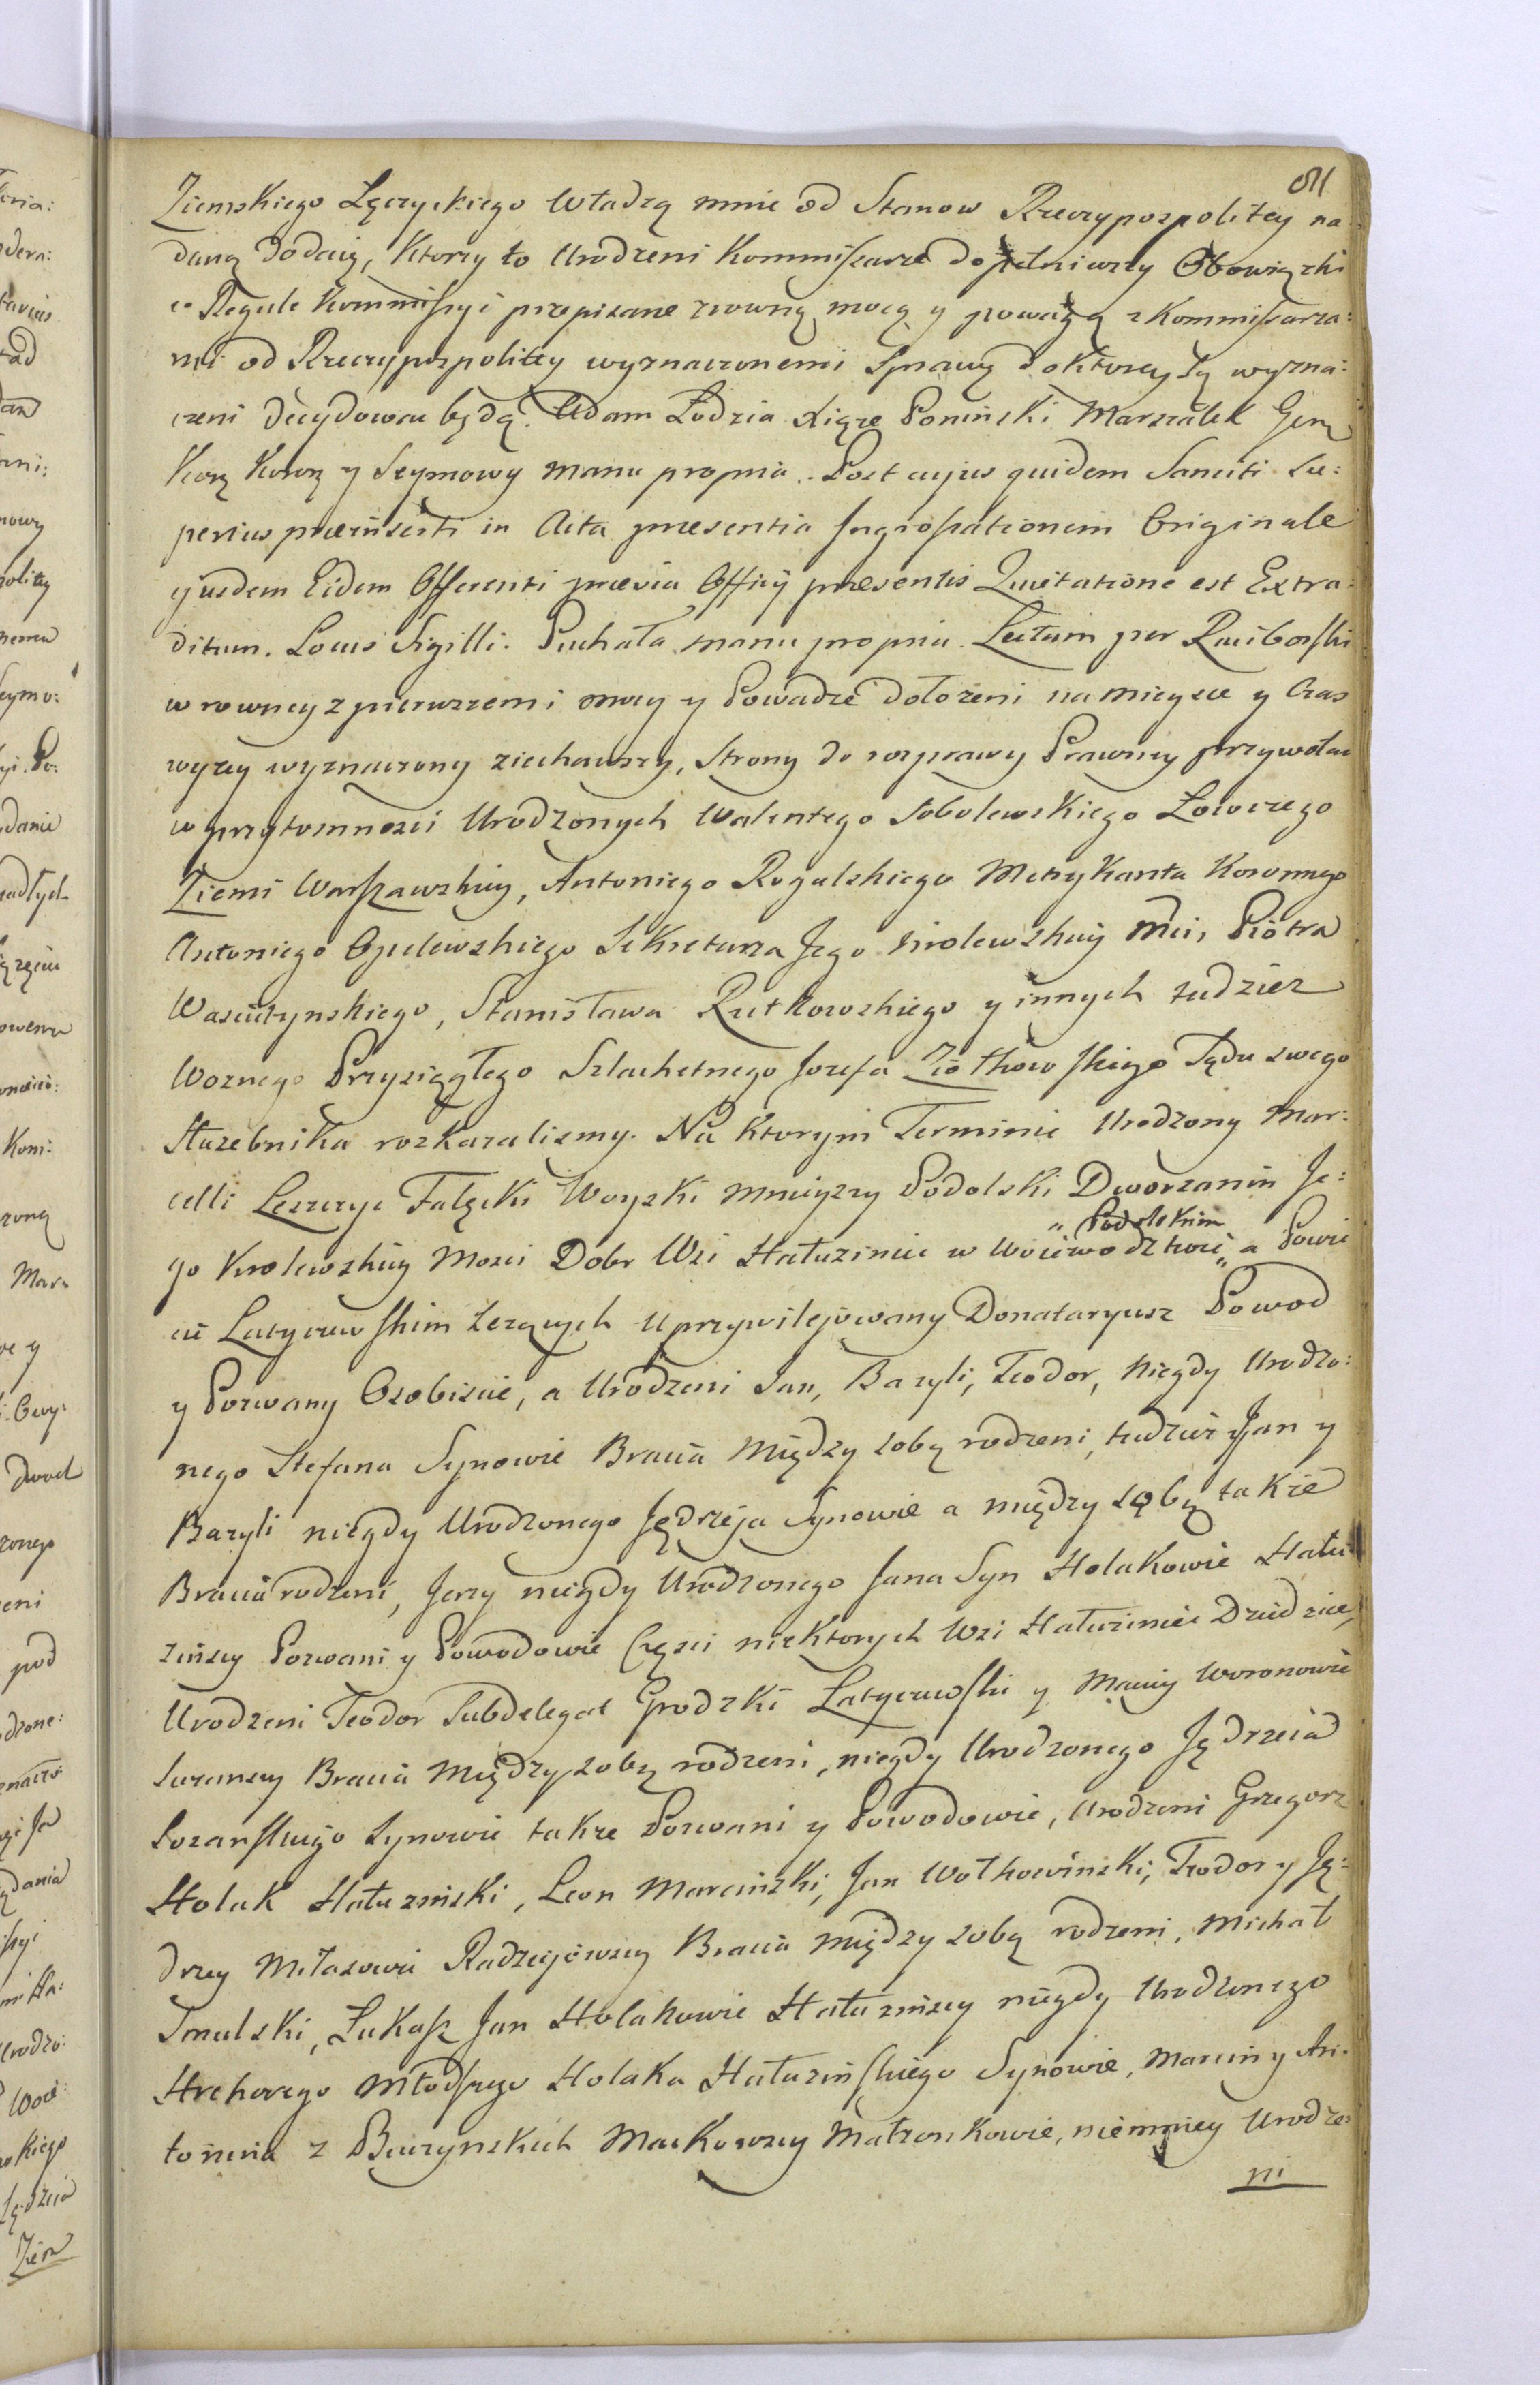 Ziemskiego Łęczyckiego Władzą mnie od Stanow Rzeczypospolitey na:
daną dodaię, Ktorzy to Urodzeni Kommissarze dopełniwszy Obowiązki
w Regule Kommissyi przepisane rowną mocą y powagą z Kommissarza:
mi od Rzeczypospolitey wyznaczonemi Sprawę do Ktorey są wyzna:
czeni decydować będą. Adam Łodzia Xiąze Poninski Marszałek
Koron y Seymowy manu propria. Post cujus quidem Sanciti Su:
perius præinserti in Acta præsentia Ingrossationem Originale
ejusdem Eidem Offerenti prævia Officij præsentis Quietatione est Extra:
ditum. Locus Sigilli. Puchała manu propria. Lectum per Raciborski
w rowney z pierwszemi mocy y Powadze dołożeni na mieysce y Czas
wyzey wyznaczony ziechawszy, Strony do rozprawy Prawney przywołać
w przytomnosci Urodzonych Walentego Sobolewskiego Łowczego
Ziemi Warszawskiey, Antoniego Rogalskiego Metrykanta Koronnego
Antoniego Opulewskiego Sekretarza Jego Krolewskiey Mci, Piotra
Wasiutynskiego, Stanisława Rutkowskiego y innych tudziez
Woznego Przysięgłego Szlachetnego Jozefa Ziołkowskiego Sądu swego
Słuzebnika rozkazalismy. Na Ktorym Terminie Urodzony Mar:
celli Leszczyc Falęcki Woyski mnieyszy Podolski Dworzanin Je:
" Podolskim
go Krolewskiey Mosci Dobr Wsi Hałuziniec w Woiewodztwie " a Powie
cie Latyczewskim lezących Uprzywilejowany Donataryusz Powod
y Pozwany Osobiscie, a Urodzeni Jan, Bazyli, Teodor, niegdy Urodzo:
nego Stefana Synowie Bracia między sobą rodzeni, tudziez Jan y
Bazyli niegdy Urodzonego Jędrzeja Synowie a między sobą takze
Bracia rodzeni, Jerzy niegdy Urodzonego Jana Syn Holakowie Hału
zinscy Pozwani y Powodowie Częsci niektorych Wsi Hałuziniec Dziedzice,
Urodzeni Teodor Subdelegat Grodzki Latyczewski y Maciey Woronowie
Suranscy Bracia między sobą rodzeni, niegdy Urodzonego Jędrzeia
Suranskiego Synowie takze Pozwani y Powodowie, Urodzeni Grzegorz
Holak Hałuzinski, Leon Marcinski, Jan Wołkowinski, Teodor y Ję:
drzey Miłasowie Radziejowscy Bracia między sobą rodzeni, Michał
Smulski, Łukasz Jan Holakowie Hałuzinscy niegdy Urodzonego
Hrehorego Młodszego Holaka Hałuzinskiego Synowie, Marcin y An:
tonina z Buczynskich Mackowscy Małzonkowie, niemniey Urodze:
ni